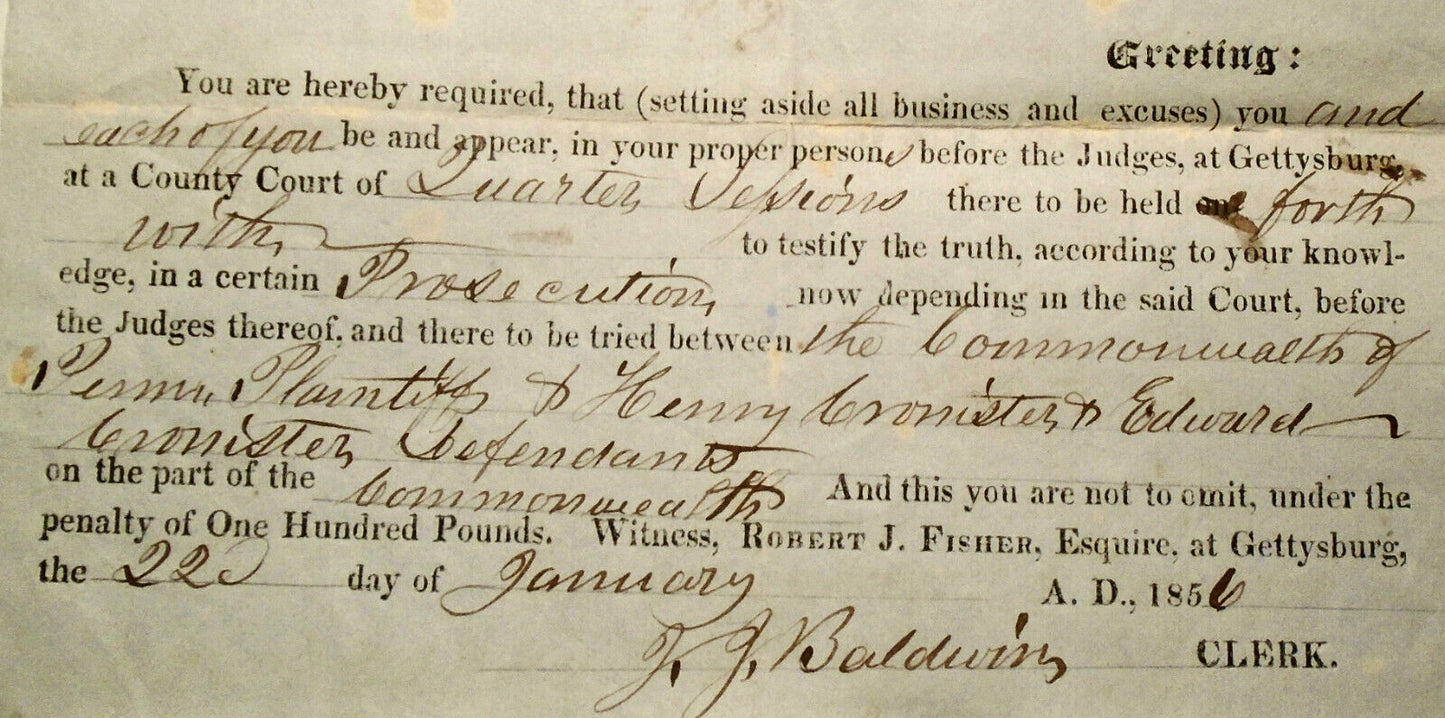 Greeting:
You are hereby required, that (setting aside all business and excuses) you and
each of you be and appear, in your proper persons before the Judges, at Gettysburg,
at a County Court of Quarter Sessions there to be held on forth
with, to testify the truth, according to your knowl-
edge, in a certain Prosecution, now depending in the said Court, before
the Judges thereof, and there to be tried between the Commonwealth of
Penna, Plaintiff & Henry Cronister & Edward
Cronister, Defendants
on the part of the Commonwealth And this you are not to omit, under the
penalty of One Hundred Pounds. Witness, ROBERT J. FISHER, Esquire, at Gettysburg,
the 22d day of January A. D., 1856
J. J. Baldwin, CLERK.